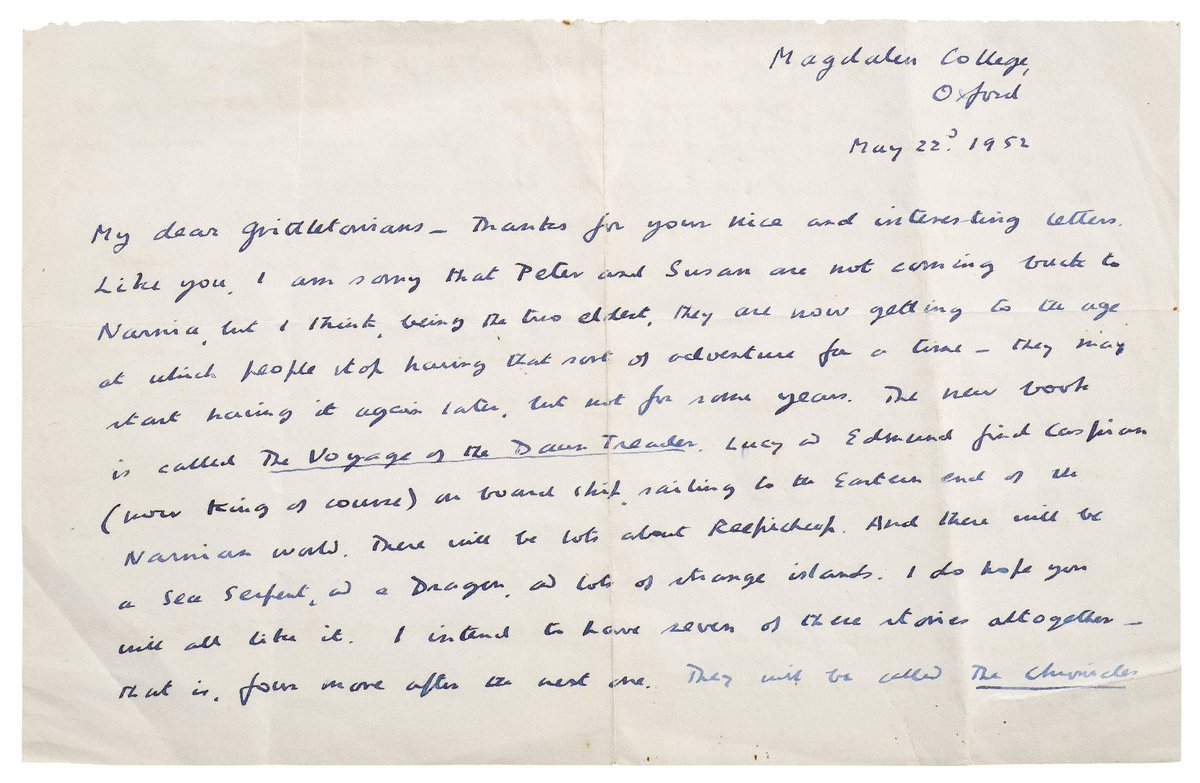 Magdalen College,
Oxford
May 22ᵈ. 1952
My dear Grittletonians – Thanks for your nice and interesting letters.
Like you, I am sorry that Peter and Susan are not coming back to
Narnia, but I think, being the two eldest, they are now getting to the age
at which people stop having that sort of adventure for a time – they may
start having it again later, but not for some years. The new book
is called The Voyage of the Dawn Treader. Lucy & Edmund find Caspian
(now King of course) on board ship, sailing to the Eastern end of the
Narnian world. There will be lots about Reepicheep. And there will be
a Sea Serpent, & a Dragon, & lots of strange islands. I do hope you
will all like it. I intend to have seven of these stories altogether –
that is, four more after the next one. They will be called The Chronicles